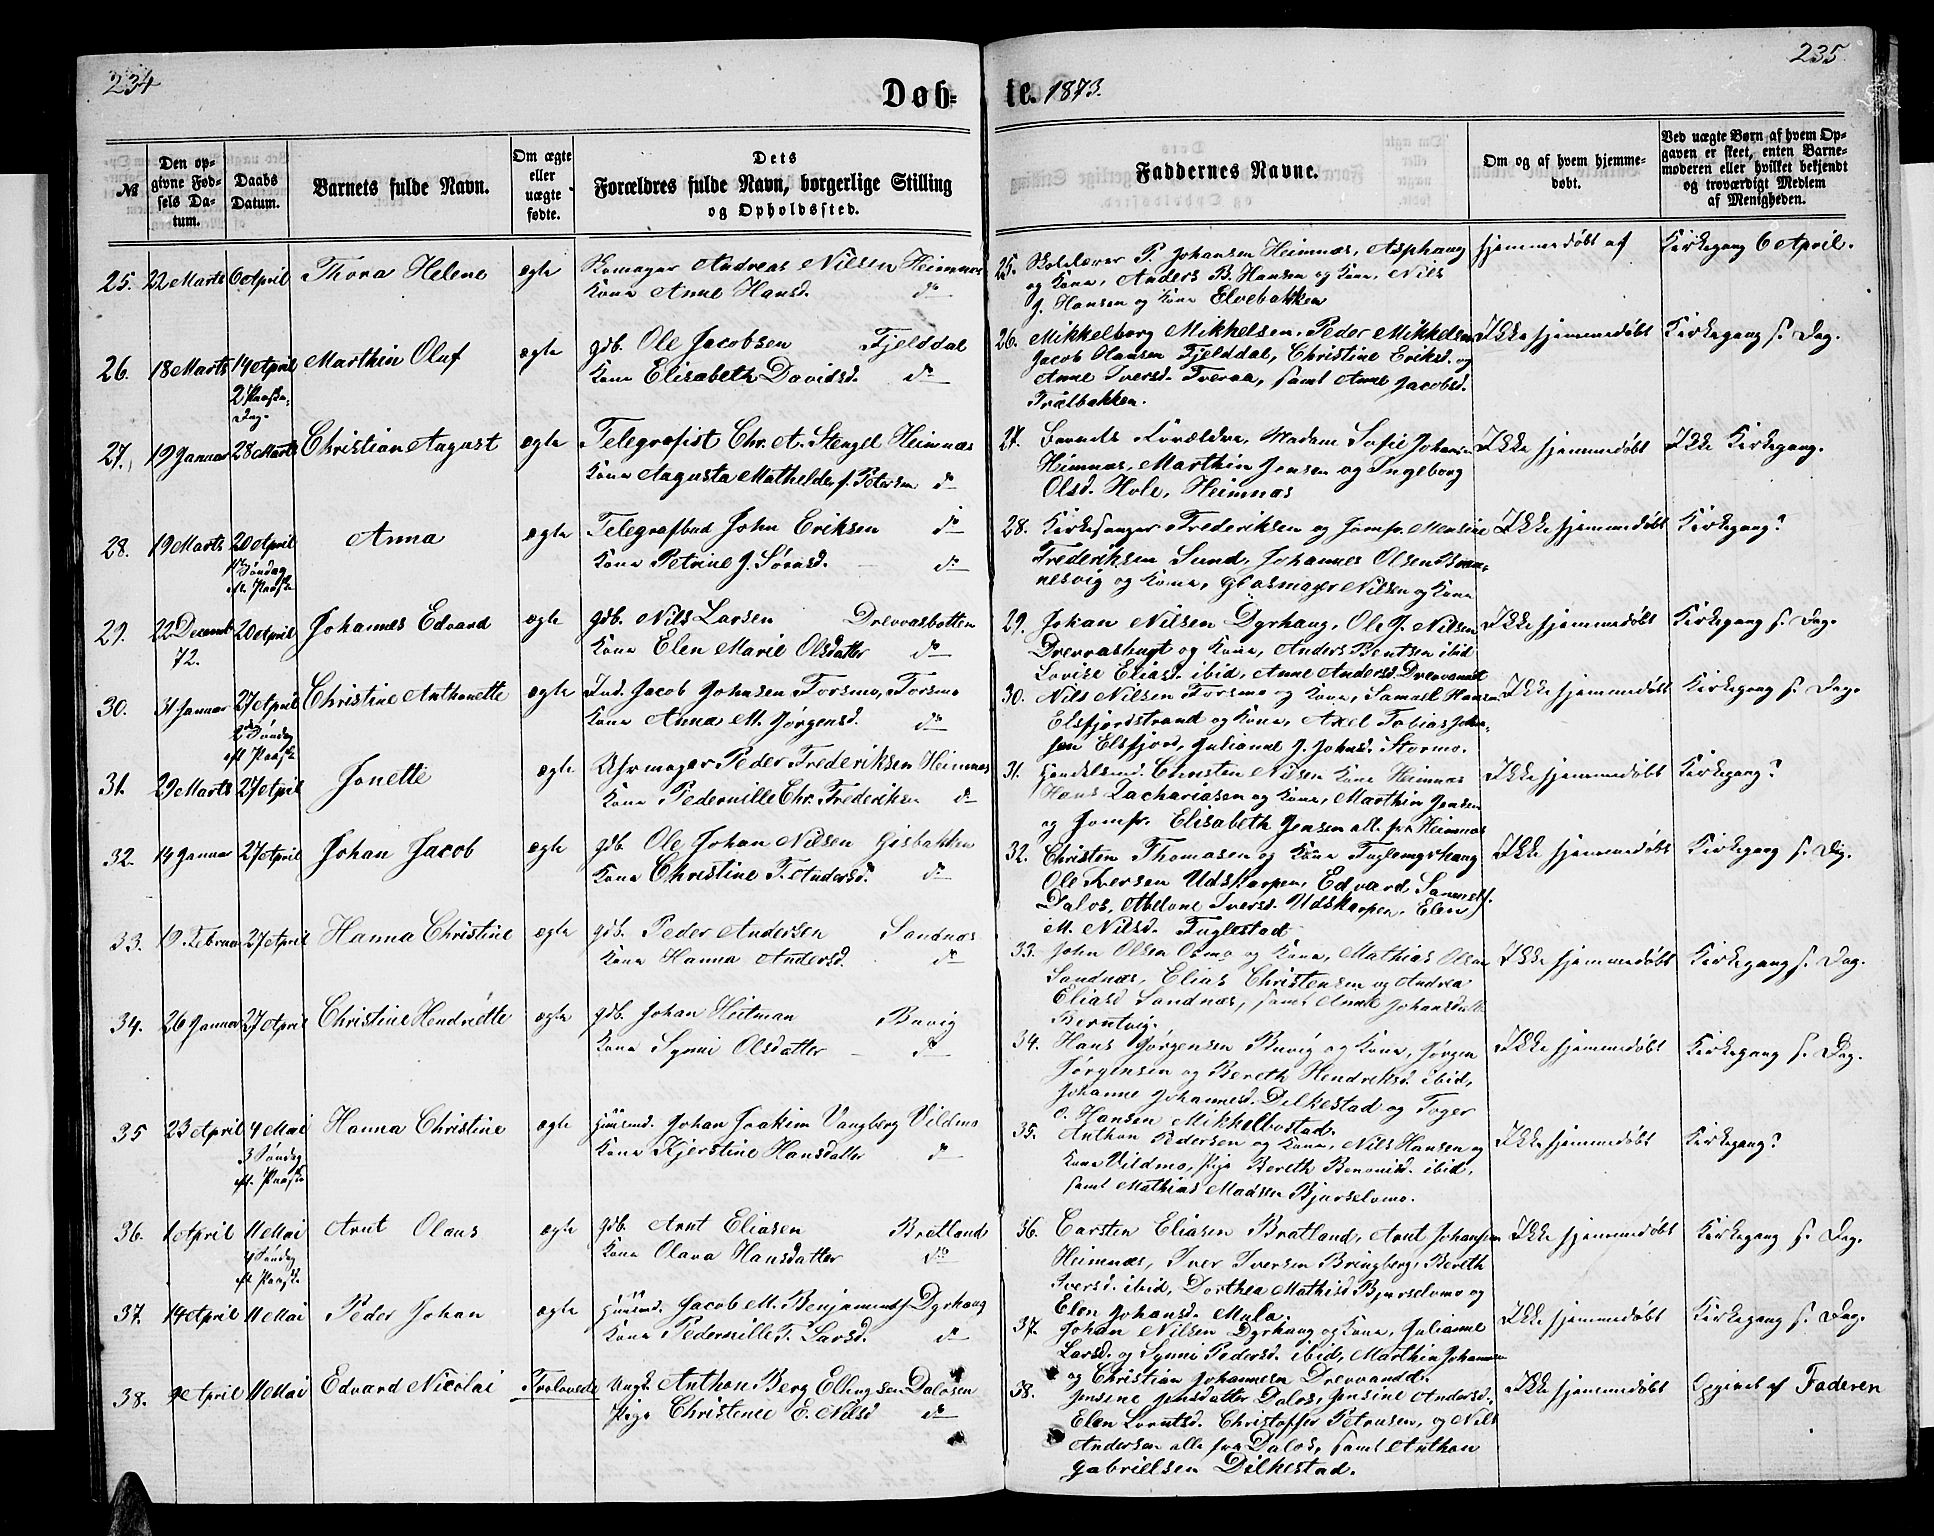 234
Døb-
№
Den op-
givne Fød-
sels Da-
tum.
Daabs
Datum.
Barnets fulde Navn.
Om ægte
eller
uægte
fødte.
Dets
Forældres fulde Navn, borgerlige Stilling
og Opholdssted.
25. 22 Marts 6 April Thora Helene ægte Komager Andreas Nilsen Heimnæs
Kone Anne Hansd. do
26. 18 Marts 14 April Marthin Oluf ægte gdb. Ole Jacobsen Fjelddal
2 Paaske-
Dag.
Kone Elisabeth Davidsd. do
27. 19 Januar 28 Marts Christian August ægte Telegrafist Chr. A. Stengel Heimnæs
Kone Augusta Mathilde f. Petersen do
28. 19 Marts 20 April Anna ægte Telegrafbud John Eriksen do
1ste Søndag
eft. Paaske
Kone Petrine J. Sørnsd. do
29. 22 Decemb 20 April Johannes Edvard ægte gdb. Nils Larsen Drevvasbotten
72.
Kone Elen Marie Olsdatter do
30. 31 Januar 27 April Christine Anthonette ægte Ind. Jacob Johnsen Forsmo, Forsmo
2 Søndag
eft Paaske
Kone Anna M. Jørgensd. do
31. 29 Marts 27 April Jonette ægte Uhrmager Peder Frederiksen Heimnæs
Kone Pedernille Chr. Frederiksen do
32. 14 Januar 27 April Johan Jacob ægte gdb. Ole Johan Nilsen Gisbakken
Kone Christine F. Andersd. do
33. 19 Februar 27 April Hanna Christine ægte gdb. Peder Andersen Sandnæs
Kone Hanna Andersd. do
34. 26 Januar 27 April Christine Hendrette ægte gdb. Johan Heitman Buvig
Kone Synni Olsdatter do
35 23 April 4 Mai Hanna Christine ægte Huusmd. Johan Joakim Vangberg Vildmo
3 Søndag
eft. Paaske
Kone Kjerstine Hansdatter do
36. 1 April 11 Mai Arnt Olaus ægte gdb. Arnt Eliasen Bratland
4 Søndag
eft Paaske
Kone Olava Hansdatter do
37. 14 April 11 Mai Peder Johan ægte Huusmd. Jacob M. Benjamins. Dyrhaug
Kone Pedernille P. Larsd. do
38. 2 April 11 Mai Edvard Nicolai Trolovede Ungk. Anthon Berg Ellingsen Dalosen
Pige Christence E. Nilsd do
235
te. 1873.
Faddernes Navne.
Om og af hvem hjemme-
døbt.
Ved uægte Børn af hvem Op-
gaven er skeet, enten Barne-
moderen eller hvilket bekjendt
og troværdigt Medlem
af Menigheden.
25. Skolelærer P. Johansen Heimnæs, Asphaug hjemmedøbt af Kirkegang 6 April.
og Kone, Anders B. Hansen og Kone, Nils
J. Hansen og Kone Elvebakken
26. Mikkelborg Mikkelsen, Peder Mikkelsen Ikke hjemmedøbt Kirkegang s. Dag.
Jacob Olausen Fjelddal, Christine Eriksd. og
Anne Iversd. Tveraa, samt Anne Jacobsd.
Trælbakken.
27. Barnets Forældre, Madam Sofie Johansen Ikke hjemmedøbt Ikke Kirkegang.
Heimnæs, Marthin Jensen og Ingeborg
Olsd. Hole, Heimnæs
28. Kirkesanger Frederiksen og Jomfr. Mensine Ikke hjemmedøbt Kirkegang?
Frederiksen Sund, Johannes Olsen
og Kone, Glasmager Nilsen og Kone
29. Johan Nilsen Dyrhaug, Ole J. Nilsen Ikke hjemmedøbt Kirkegang s. Dag.
og Kone, Anders Bentsen ibid
Lovise Eliasd. ibid, Anne Andersd. Drevvand
30. Nils Nilsen Forsmo og Kone, Samuel Hansen Ikke hjemmedøbt Kirkegang s. Dag.
Elsfjordstrand og Kone, Axel Tobias Johan-
sen Elsfjord, Julianne J. Johnsd. Stormo.
31. Handelsmd. Christen Nilsen Kone Heimnæs Ikke hjemmedøbt Kirkegang?
Hans Zachariasen og Kone, Marthin Jensen
og Jomfr. Elisabeth Jensen all. fra Heimnæs
32. Christen Thomasen og Kone Ikke hjemmedøbt Kirkegang s. Dag.
Ole Iversen Udskarpen, Edvard
Dalos, Abelone Iversd. Udskarpen, Elen
M. Nilsd. Fuglestad
33. John Olsen Osmo og Kone, Mathias Olsen Ikke hjemmedøbt Kirkegang s. Dag.
Sandnæs, Elias Christensen og Andrea
Eliasd Sandnæs, samt Anne Johansdatter
34. Hans Jørgensen Buvig og Kone, Jørgen Ikke hjemmedøbt Kirkegang s. Dag.
Jørgensen og Bereth Hendriksd. ibid,
Johanne Johannesd. Dilkestad og Toger
O. Hansen Mikkelbostad.
35. Anthon Pedersen og Kone, Nils Hansen og Ikke hjemmedøbt Kirkegang?
Kone Vildmo, Pige Bereth Benonisd. ibid,
samt Mathias Madsen Bjurselvmo.
36. Carsten Eliasen Bratland, Arnt Johansen Ikke hjemmedøbt Kirkegang s. Dag.
Heimnæs, Iver Iversen Bringberg, Bereth
Iversd. ibid, Dorthea Mathisd Bjurselvmo og
Elen Johansd. Mula.
37. Johan Nilsen Dyrhaug og Kone, Julianne Ikke hjemmedøbt Kirkegang s. Dag.
Larsd. og Synni Pedersd. ibid, Marthin Johansen
og Christian Johannesen Drevvand
38. Jensine Jensdatter Dalos, Jensine Andersd. Ikke hjemmedøbt Opgivet af Faderen
Elen Lorntsd. Christoffer Petersen, og Nils
Andersen alle fra Dalos, samt Anthon
Gabrielsen Dilkestad.